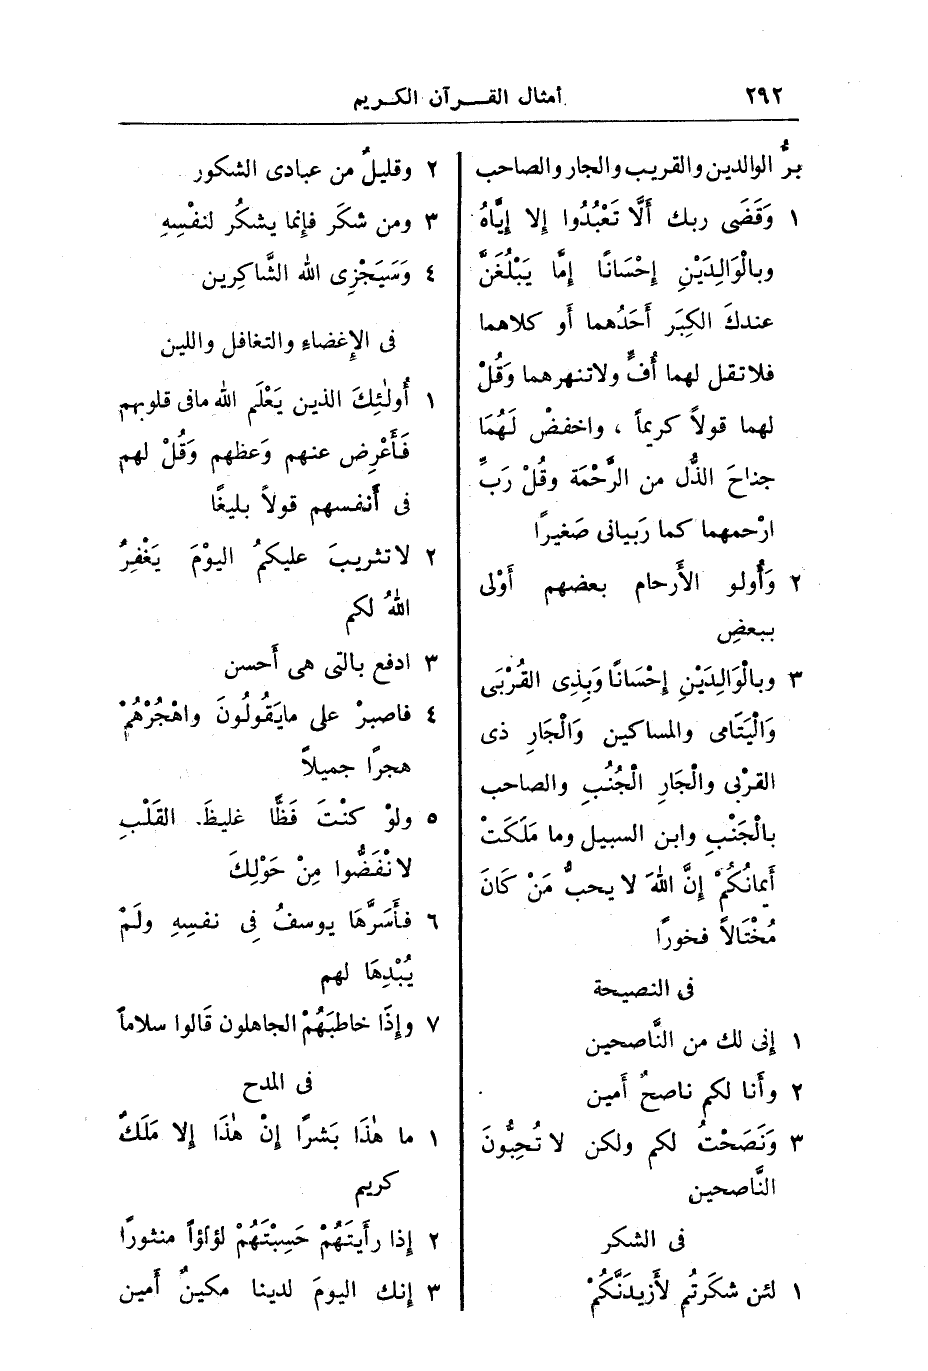 ٢٩٢
أمثال القـرآن الكريم
برُّ الوالدين والقريب والجار والصاحب
١ وَقَضَى ربك أَلَّا تَعْبُدُوا إلا إيَّاهُ
وبالْوَالِدَيْنِ إحْسَانًا إمَّا يَبْلُغَنَّ
عندكَ الكِبَر أَحَدُهما أو كلاهما
فلاتقل لهما أُفٍّ ولاتنهرهما وَقُلْ
لهما قولاً كريماً ، واخفضْ لَهُمَا
جناحَ الذُّل من الرَّحْمَة وقُلْ رَبِّ
ارْحمهما كما رَبيانى صَغيرًا
٢ وَأُولو الأَرحام بعضهم أَوْلى
ببعضٍ
٣ وبالْوَالِدَيْنِ إحْسَانًا وَبِذِى القُرْبَى
وَالْيَتَامى والمساكين وَالْجَارِ ذى
القرْبى والْجَارِ الْجُنُبِ والصاحب
بالْجَنْبِ وابن السبيل وما مَلَكَتْ
أيمانُكُمْ إنَّ اللهَ لا يحبُّ مَنْ كَانَ
مُخْتَالاً فخورًا
فى النصيحة
١ إنى لك من النَّاصحين
٢ وأنا لكم ناصحٌ أَمين
٣ وَنَصَحْتُ لكم ولكن لا تُحِبُّونَ
النَّاصحين
فى الشكر
١ لئن شكَرتُم لأَزيدَنَّكُمْ
٢ وقليلٌ من عبادى الشكور
٣ ومن شكَر فإنما يشكُر لنفْسِهِ
٤ وَسَيَجْزِى الله الشَّاكِرِين
فى الإغضاء والتغافل واللين
١ أُولٰئِكَ الذين يَعْلَم الله مافى قلوبهم
فَأَعْرِض عنهم وَعظهم وَقُلْ لهم
فى أَنفسهم قولاً بليغًا
٢ لاتثريبَ عليكمُ اليوْمَ يَغْفِرُ
اللهُ لكم
٣ ادفع بالتى هى أَحسن
٤ فاصبرْ على مايَقُولُونَ واهْجُرْهُمْ
هجرًا جميلاً
٥ ولوْ كنْتَ فَظًّا غليظَ القَلْبِ
لانْفَضُّوا مِنْ حَوْلِكَ
٦ فأَسَرَّهَا يوسفُ فِى نفسِهِ ولَمْ
يُبْدِهَا لهم
٧ وإذَا خاطبَهُمْ الجاهلون قَالوا سلاماً
فى المدح
١ ما هٰذَا بَشرًا إنْ هٰذَا إلا مَلَكٌ
كريم
٢ إذا رأَيتَهُمْ حَسِبْتَهُمْ لؤلؤاً منثورًا
٣ إنك اليومَ لدينا مكينٌ أَمين